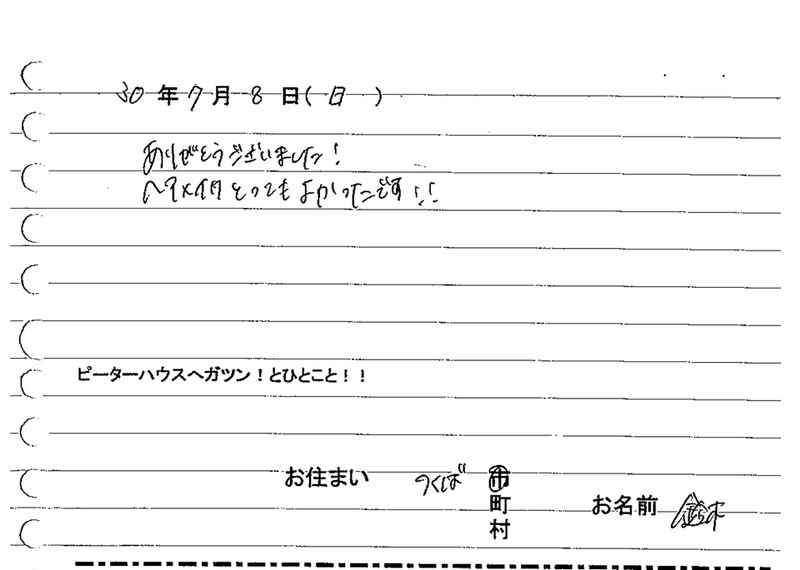 30 年 7 月 8 日( 日 )
ありがとうございました!
ヘアメイク とっても よかったです!!
ピーターハウスへガツン!とひとこと!!
お住まい つくば 市
町
村
お名前 鈴木